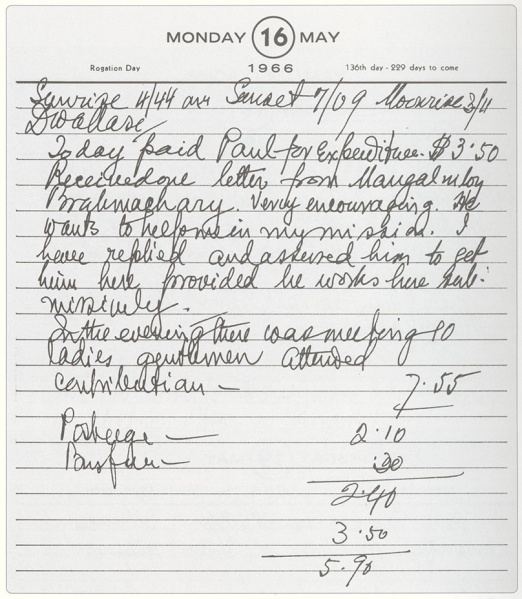 MONDAY 16 MAY
Rogation Day 1966 136th day - 229 days to come
Sunrise 4/44 am Sunset 7/09 Moonrise 3/11
Dwadasi
Today paid Paul for Expenditure $3.50
Received one letter from Mangalniloy
Brahmachary. Very encouraging. He
wants to help me in my mission. I
have replied and assured him to get
him here provided he works here sub-
missively.
In the evening there was meeting 10
ladies gentlemen attended
contribution — 7.55
Postage — 2.10
Busfare — .30
2.40
3.50
5.90